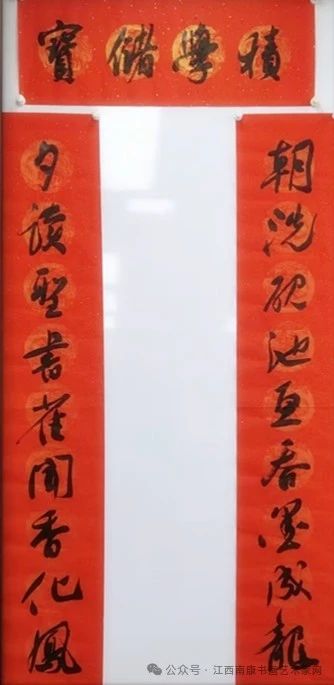 積學儲寶
朝洗硯池魚吞墨成龍
夕讀聖書雀聞香化鳳
公众号 · 江西南康书画艺术家网